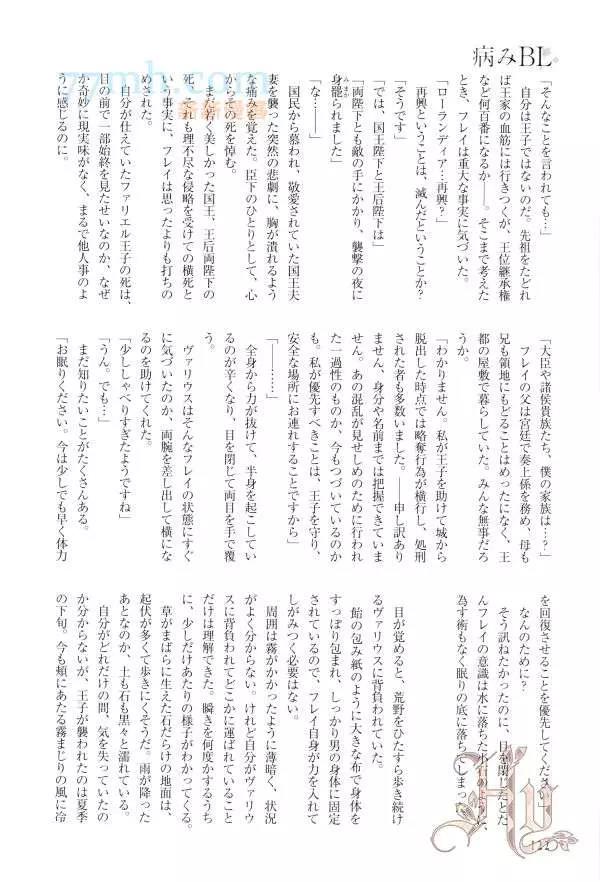 病みBL
「そんなことを言われても…」
　自分は王子ではないのだ。先祖をたどれ
ば王家の血筋には行きつくが、王位継承権
など何百番になるか――。そこまで考えた
とき、フレイは重大な事実に気づいた。
「ローランディア…再興？
　再興ということは、滅んだということか？
「そうです」
「では、国王陛下と王后陛下は」
「両陛下とも敵の手にかかり、襲撃の夜に
身罷られました」
みまか
「な……――」
　国民から慕われ、敬愛されていた国王夫
妻を襲った突然の悲劇に、胸が潰れるよう
な痛みを覚えた。臣下のひとりとして、心
からその死を悼む。
　まだ若く美しかった国王、王后両陛下の
死、それも理不尽な侵略を受けての横死と
いう事実に、フレイは思ったよりも打ちの
めされた。
　自分が仕えていたファリエル王子の死は、
目の前で一部始終を見たせいなのか、なぜ
か奇妙に現実味がなく、まるで他人事のよ
うに感じるのに。
「大臣や諸侯貴族たち、僕の家族は…？」
　フレイの父は宮廷で奏上係を務め、母も
兄も領地にもどることはめったになく、王
都の屋敷で暮らしていた。みんな無事だろ
うか。
「わかりません。私が王子を助けて城から
脱出した時点では略奪行為が横行し、処刑
された者も多数いました。――申し訳あり
ませんが、身分や名前までは把握できていま
せん。あの混乱が見せしめのために行われ
た一過性のものか、今もつづいているのか
も。私が優先すべきことは、王子を守り、
安全な場所にお連れすることですから」
「…………」
　全身から力が抜けて、半身を起こしてい
るのが辛くなり、目を閉じて両目を手で覆
う。
　ヴァリウスはそんなフレイの状態にすぐ
に気づいたのか、両腕を差し出して横にな
るのを助けてくれた。
「少ししゃべりすぎたようですね」
「うん。でも…」
　まだ知りたいことがたくさんある。
「お眠りください。今は少しでも早く体力
を回復させることを優先してください」
　なんのために？
　そう訊ねたかったのに、目を閉じたとた
んフレイの意識は水に落ちた小石のように、
為す術もなく眠りの底に落ちてしまっ
　目が覚めると、荒野をひたすら歩き続け
るヴァリウスに背負われていた。
　飴の包み紙のように大きな布で身体を
すっぽり包まれ、しっかり男の身体に固定
されているので、フレイ自身が力を入れて
しがみつく必要はない。
　周囲は霧がかかったように薄暗く、状況
がよく分からない。けれど自分がヴァリウ
スに背負われてどこかに運ばれていること
だけは理解できた。瞬きを何度かするうち
に、少しだけあたりの様子がわかってくる。
　草がまばらに生えた石だらけの地面は、
起伏が多くて歩きにくそうだ。雨が降った
あとなのか、土も石も黒々と濡れている。
　自分がどれだけの間、気を失っていたの
か分からないが、王子が襲われたのは夏季
の下旬。今も頬にあたる霧まじりの風に冷
122